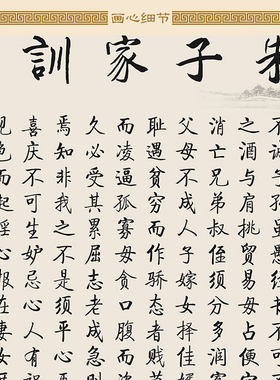 画心细节
子家訓
之酒与肩挑贸易毋占便宜
消亡兄弟叔侄须分多润寡
父母不成人子嫁女择佳婿
耻遇贫穷而作骄态者贱莫
而凌逼孤寡毋贪口腹而恣
久必受其累屈志老成急则
焉知非我之不是须平心
喜庆不可生妒忌心人有祸
见色而起淫心报在妻女